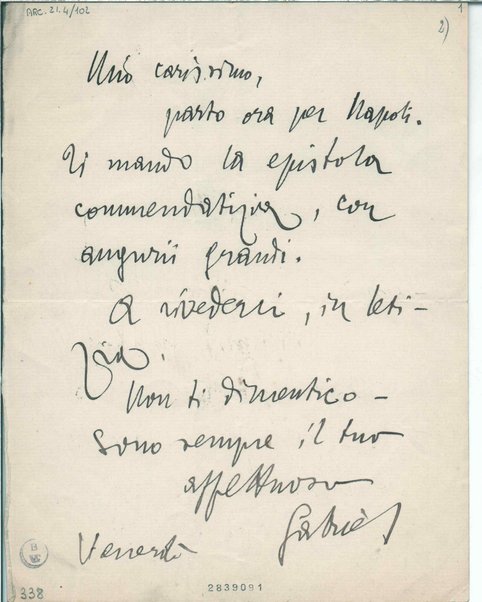 ARC. 21.4/102
1
2)
Mio carissimo,
parto ora per Napoli.
Ti mando la epistola
commendatizia, con
augurii grandi.
A rivederci, in leti-
zia.
Non ti dimentico –
Sono sempre il tuo
affettuoso
Gabriel
Venerdì
B
338
2839091